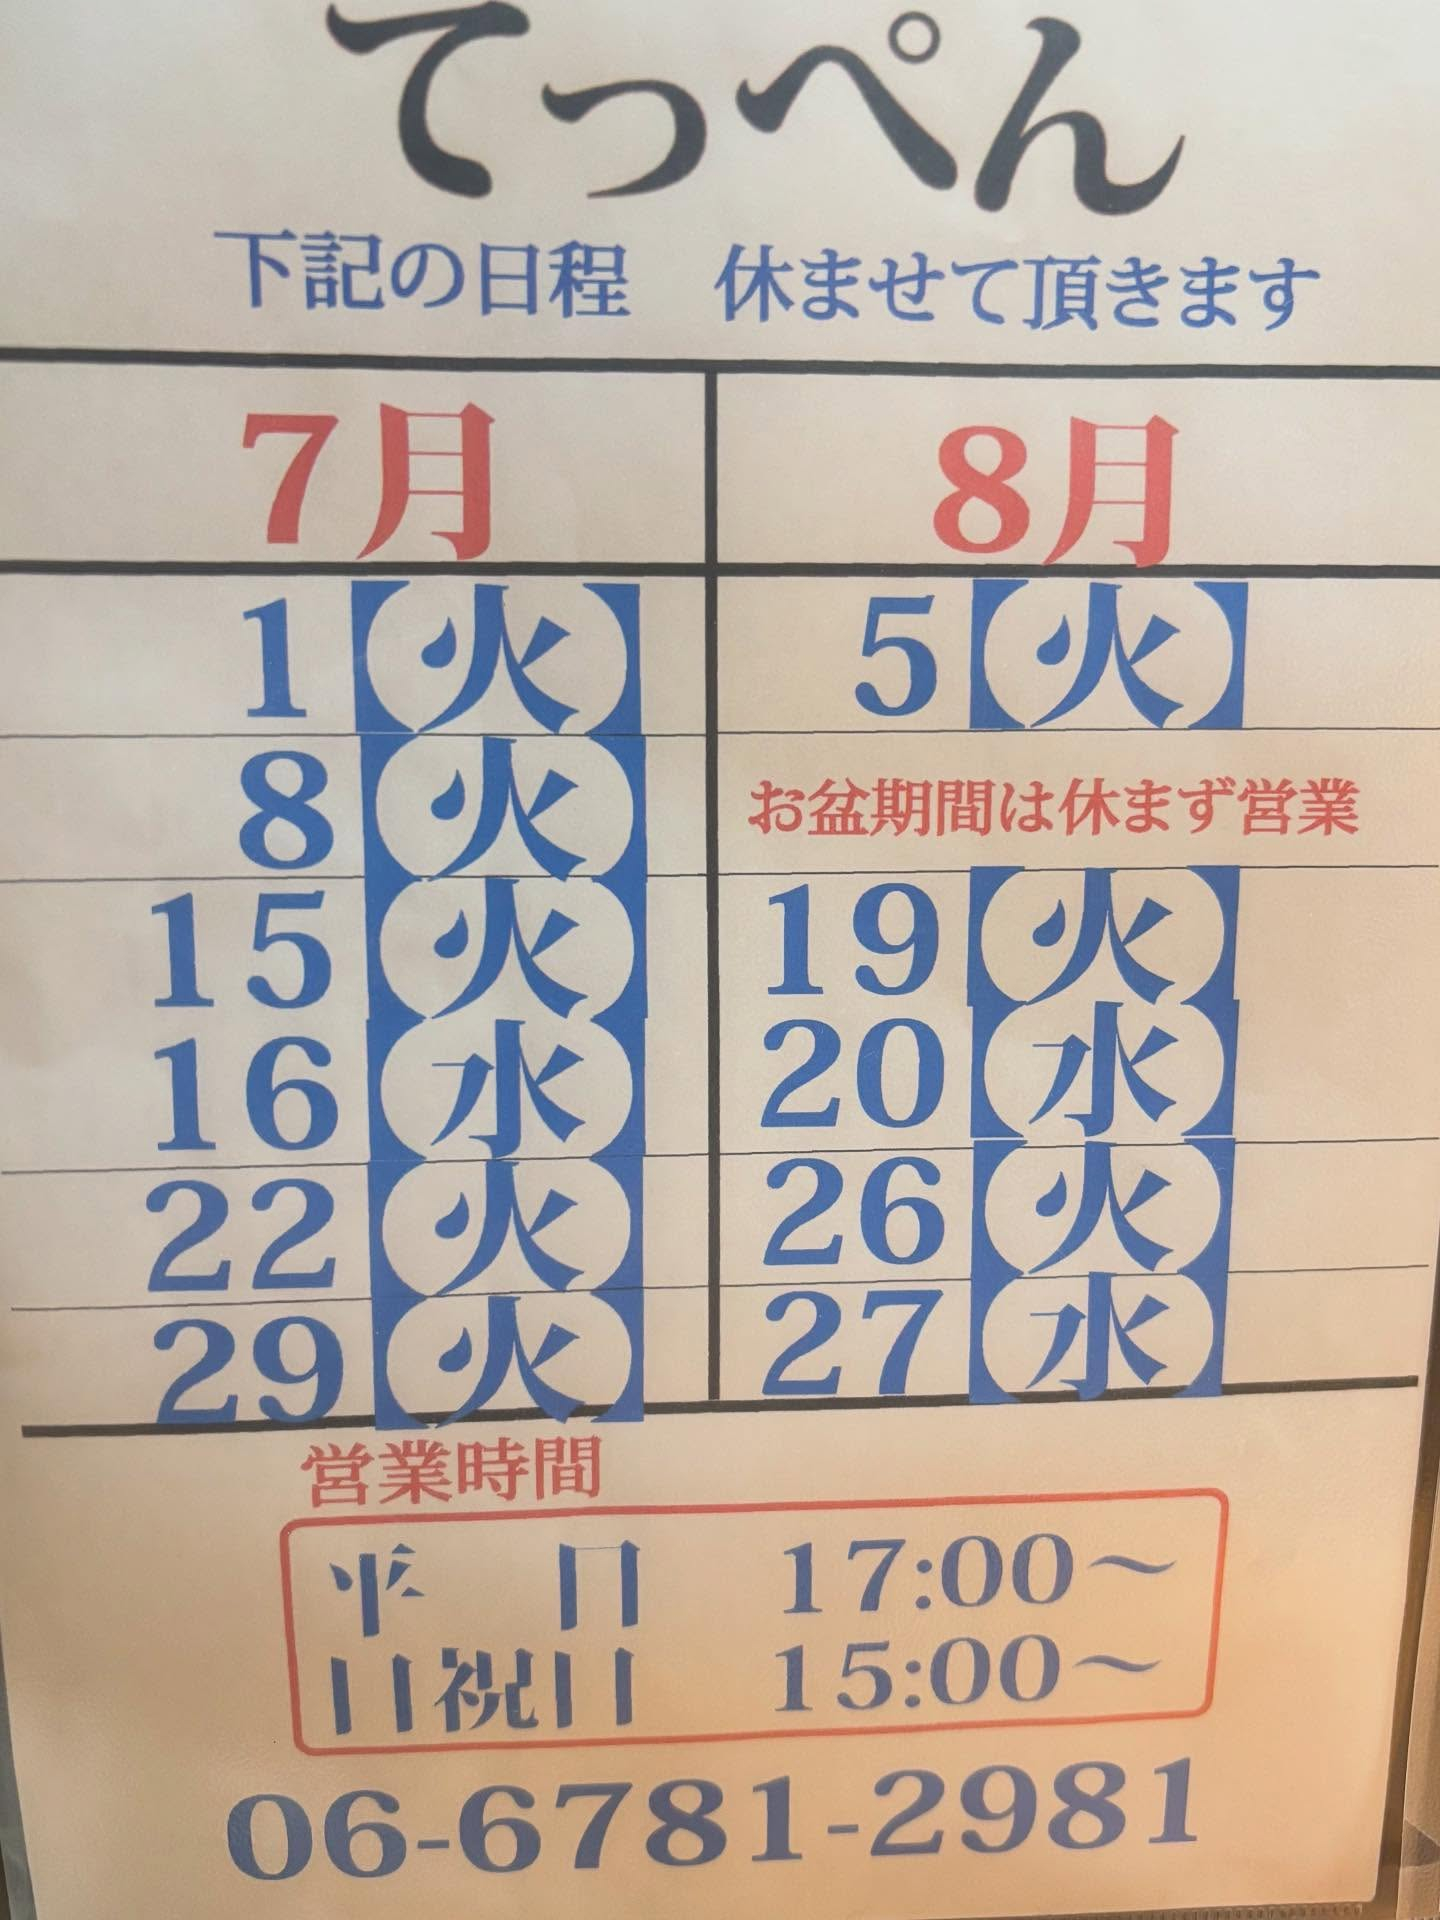 てっぺん
下記の日程　休ませて頂きます
7月
8月
1【火】
8【火】
15【火】
16【水】
22【火】
29【火】
5【火】
お盆期間は休まず営業
19【火】
20【水】
26【火】
27【水】
営業時間
平　日　17:00～
日祝日　15:00～
06-6781-2981